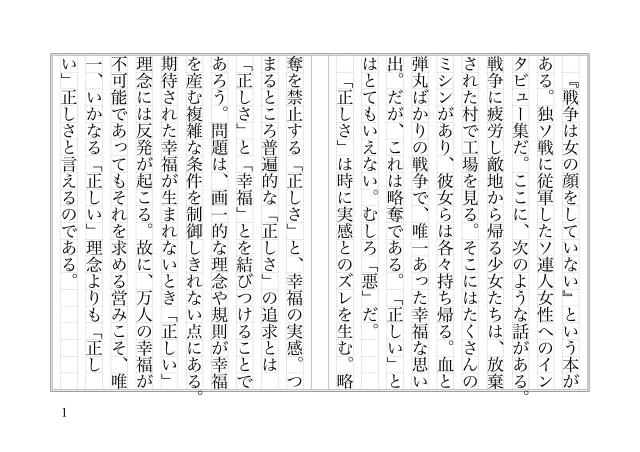 『戦争は女の顔をしていない』という本が
ある。独ソ戦に従軍したソ連人女性へのイン
タビュー集だ。ここに、次のような話がある。
戦争に疲労し敵地から帰る少女たちは、放棄
された村で工場を見る。そこにはたくさんの
ミシンがあり、彼女らは各々持ち帰る。血と
弾丸ばかりの戦争で、唯一あった幸福な思い
出。だが、これは略奪である。「正しい」と
はとてもいえない。むしろ「悪」だ。
「正しさ」は時に実感とのズレを生む。略
奪を禁止する「正しさ」と、幸福の実感。つ
まるところ普遍的な「正しさ」の追求とは
「正しさ」と「幸福」とを結びつけることで
あろう。問題は、画一的な理念や規則が幸福
を産む複雑な条件を制御しきれない点にある。
期待された幸福が生まれないとき「正しい」
理念には反発が起こる。故に、万人の幸福が
不可能であってもそれを求める営みこそ、唯
一、いかなる「正しい」理念よりも「正し
い」正しさと言えるのである。
1